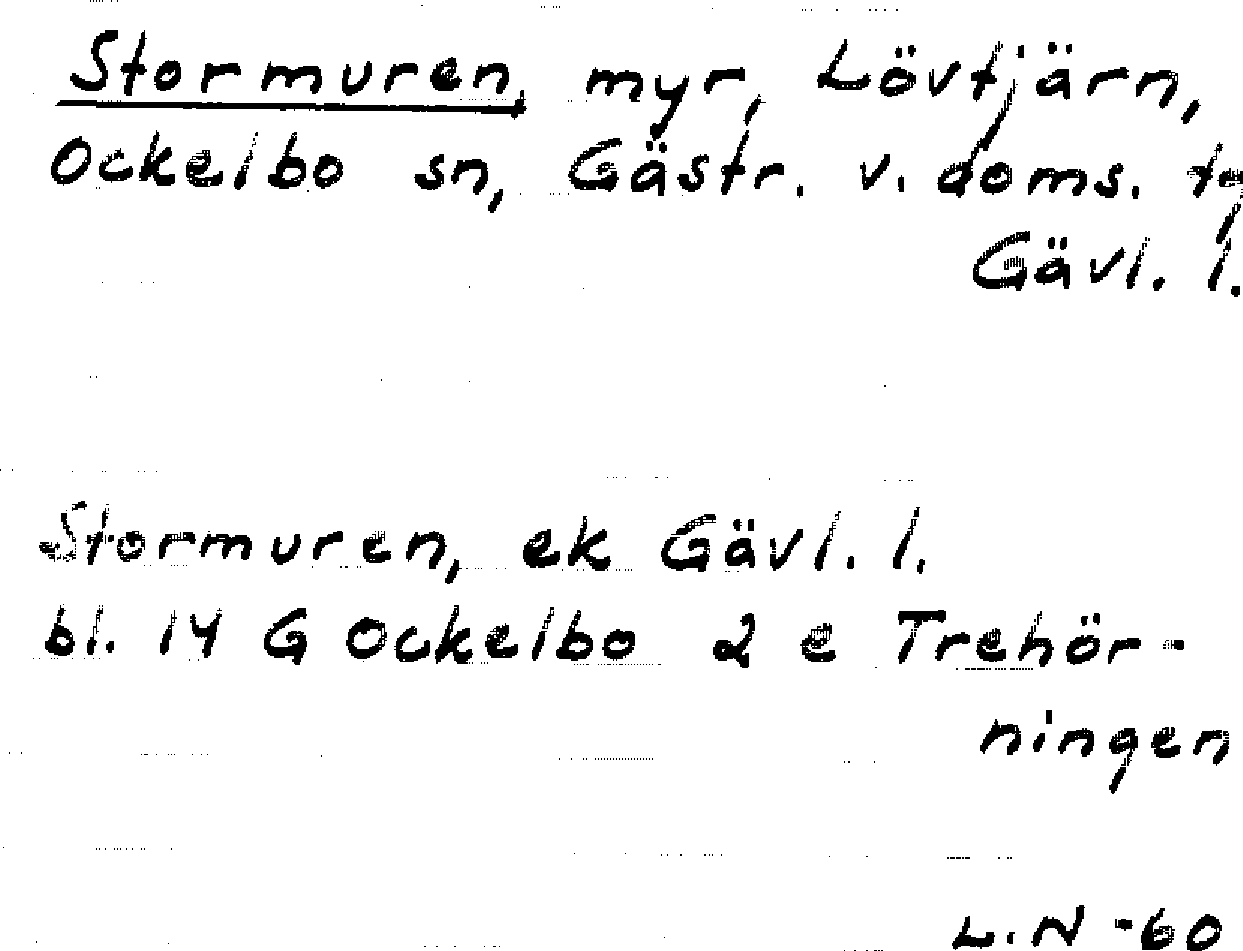 Stormuren, myr, Lövtjärn,
Ockelbo sn, Gästr. v. doms. tg
Gävl. l.
Stormuren, ek Gävl. l.
bl. 14 G Ockelbo 2 e Trehör-
ningen
L.N -60